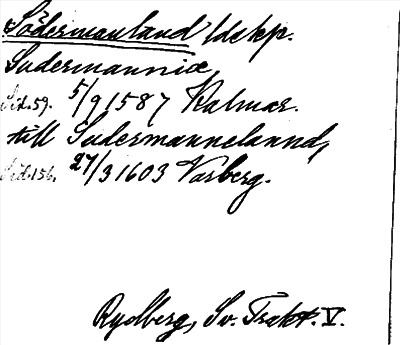 Södermanland ldskp.
Sudermanniæ
Sid. 59. 5/9 1587 Kalmar.
till Sudermannelannd,
Sid. 156. 27/3 1603 Varberg.
Rydberg, Sv. Trakt. V.